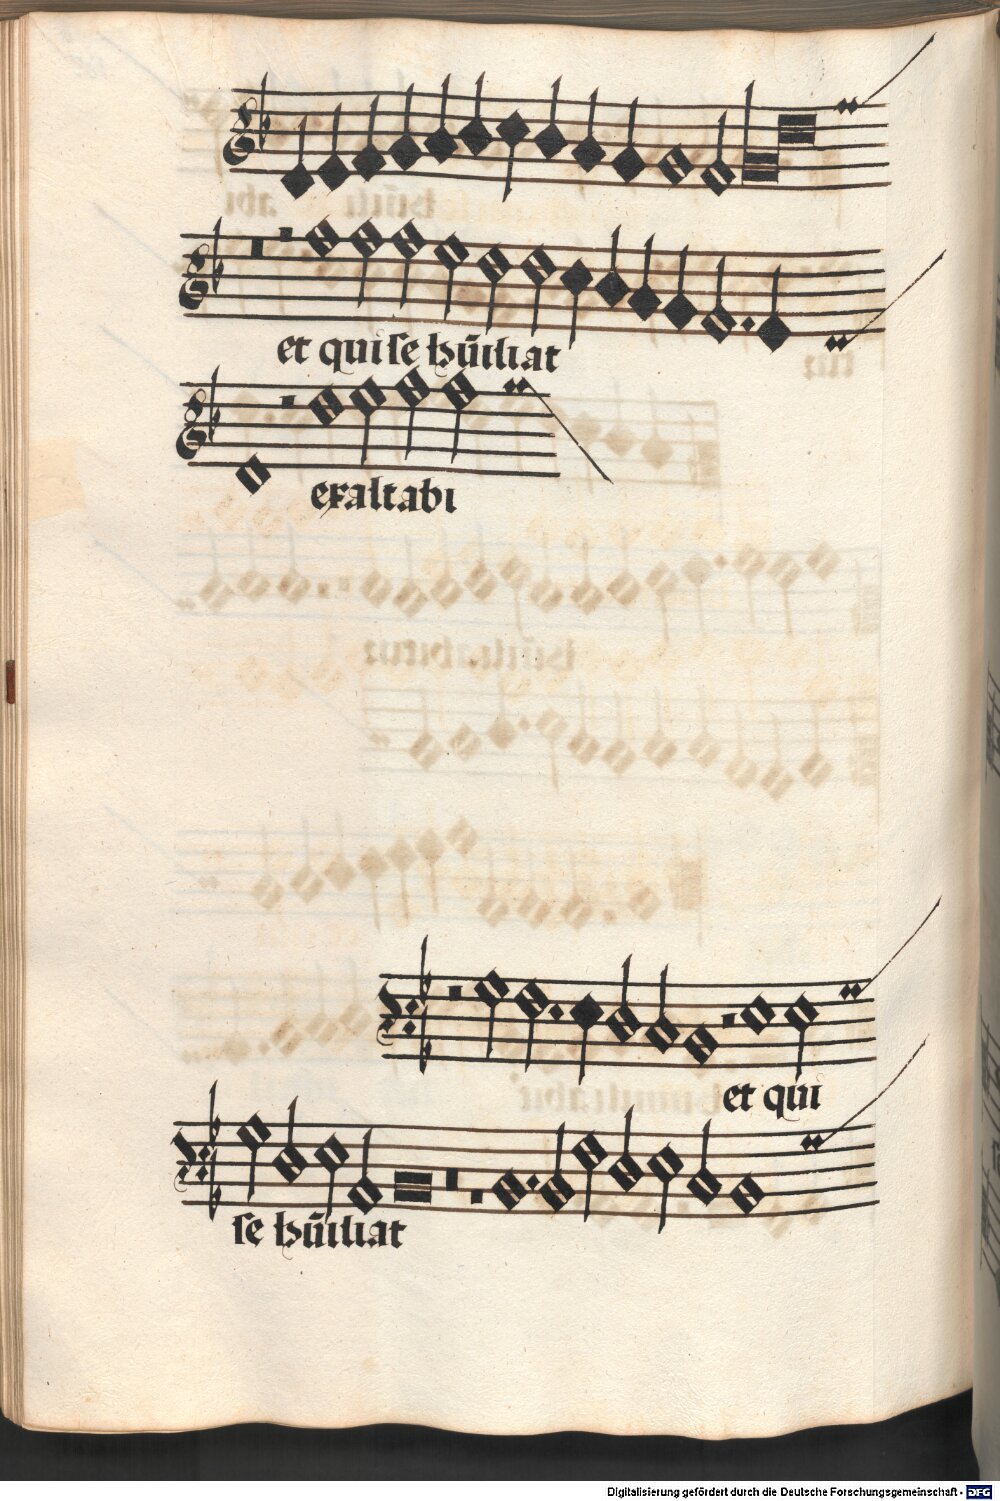 et qui se hūiliat
exaltabi
et qui
se hūiliat
Digitalisierung gefördert durch die Deutsche Forschungsgemeinschaft - DFG